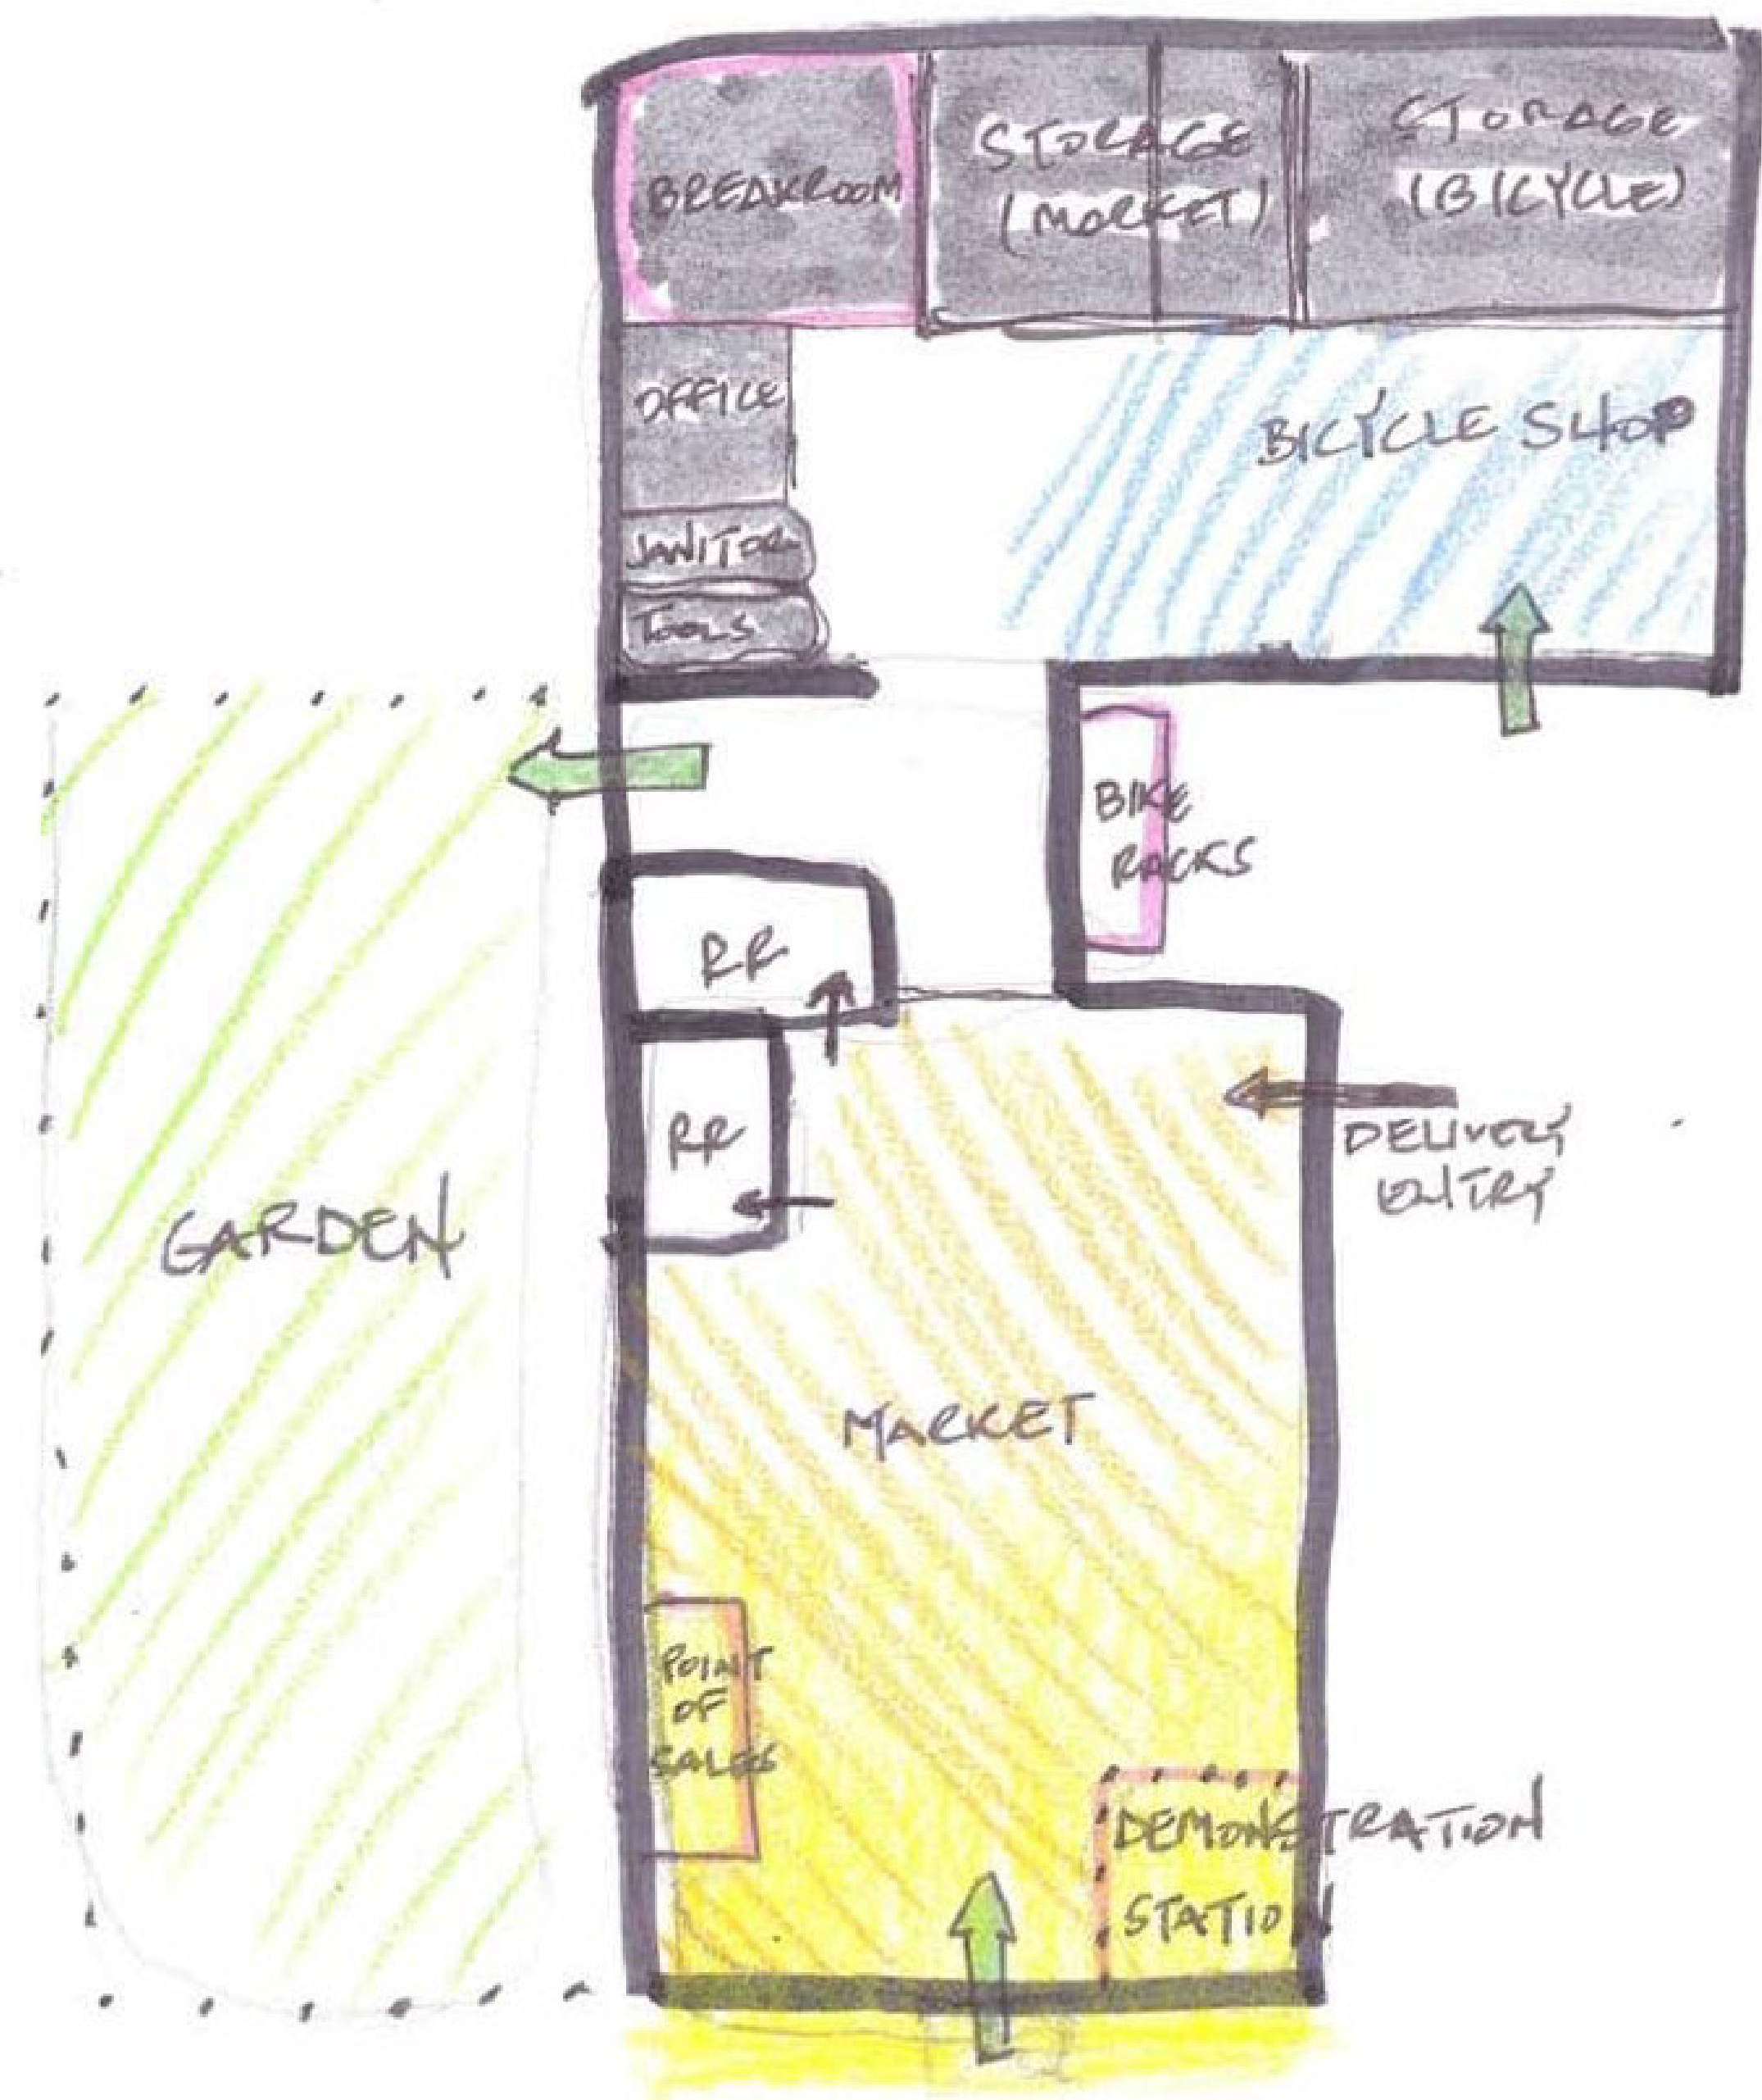 BREAKROOM
STORAGE
(MARKET)
STORAGE
(BICYCLE)
OFFICE
BICYCLE SHOP
JANITOR
TOOLS
BIKE
RACKS
RR
RR
DELIVERY
ENTRY
GARDEN
MARKET
POINT
OF
SALES
DEMONSTRATION
STATION